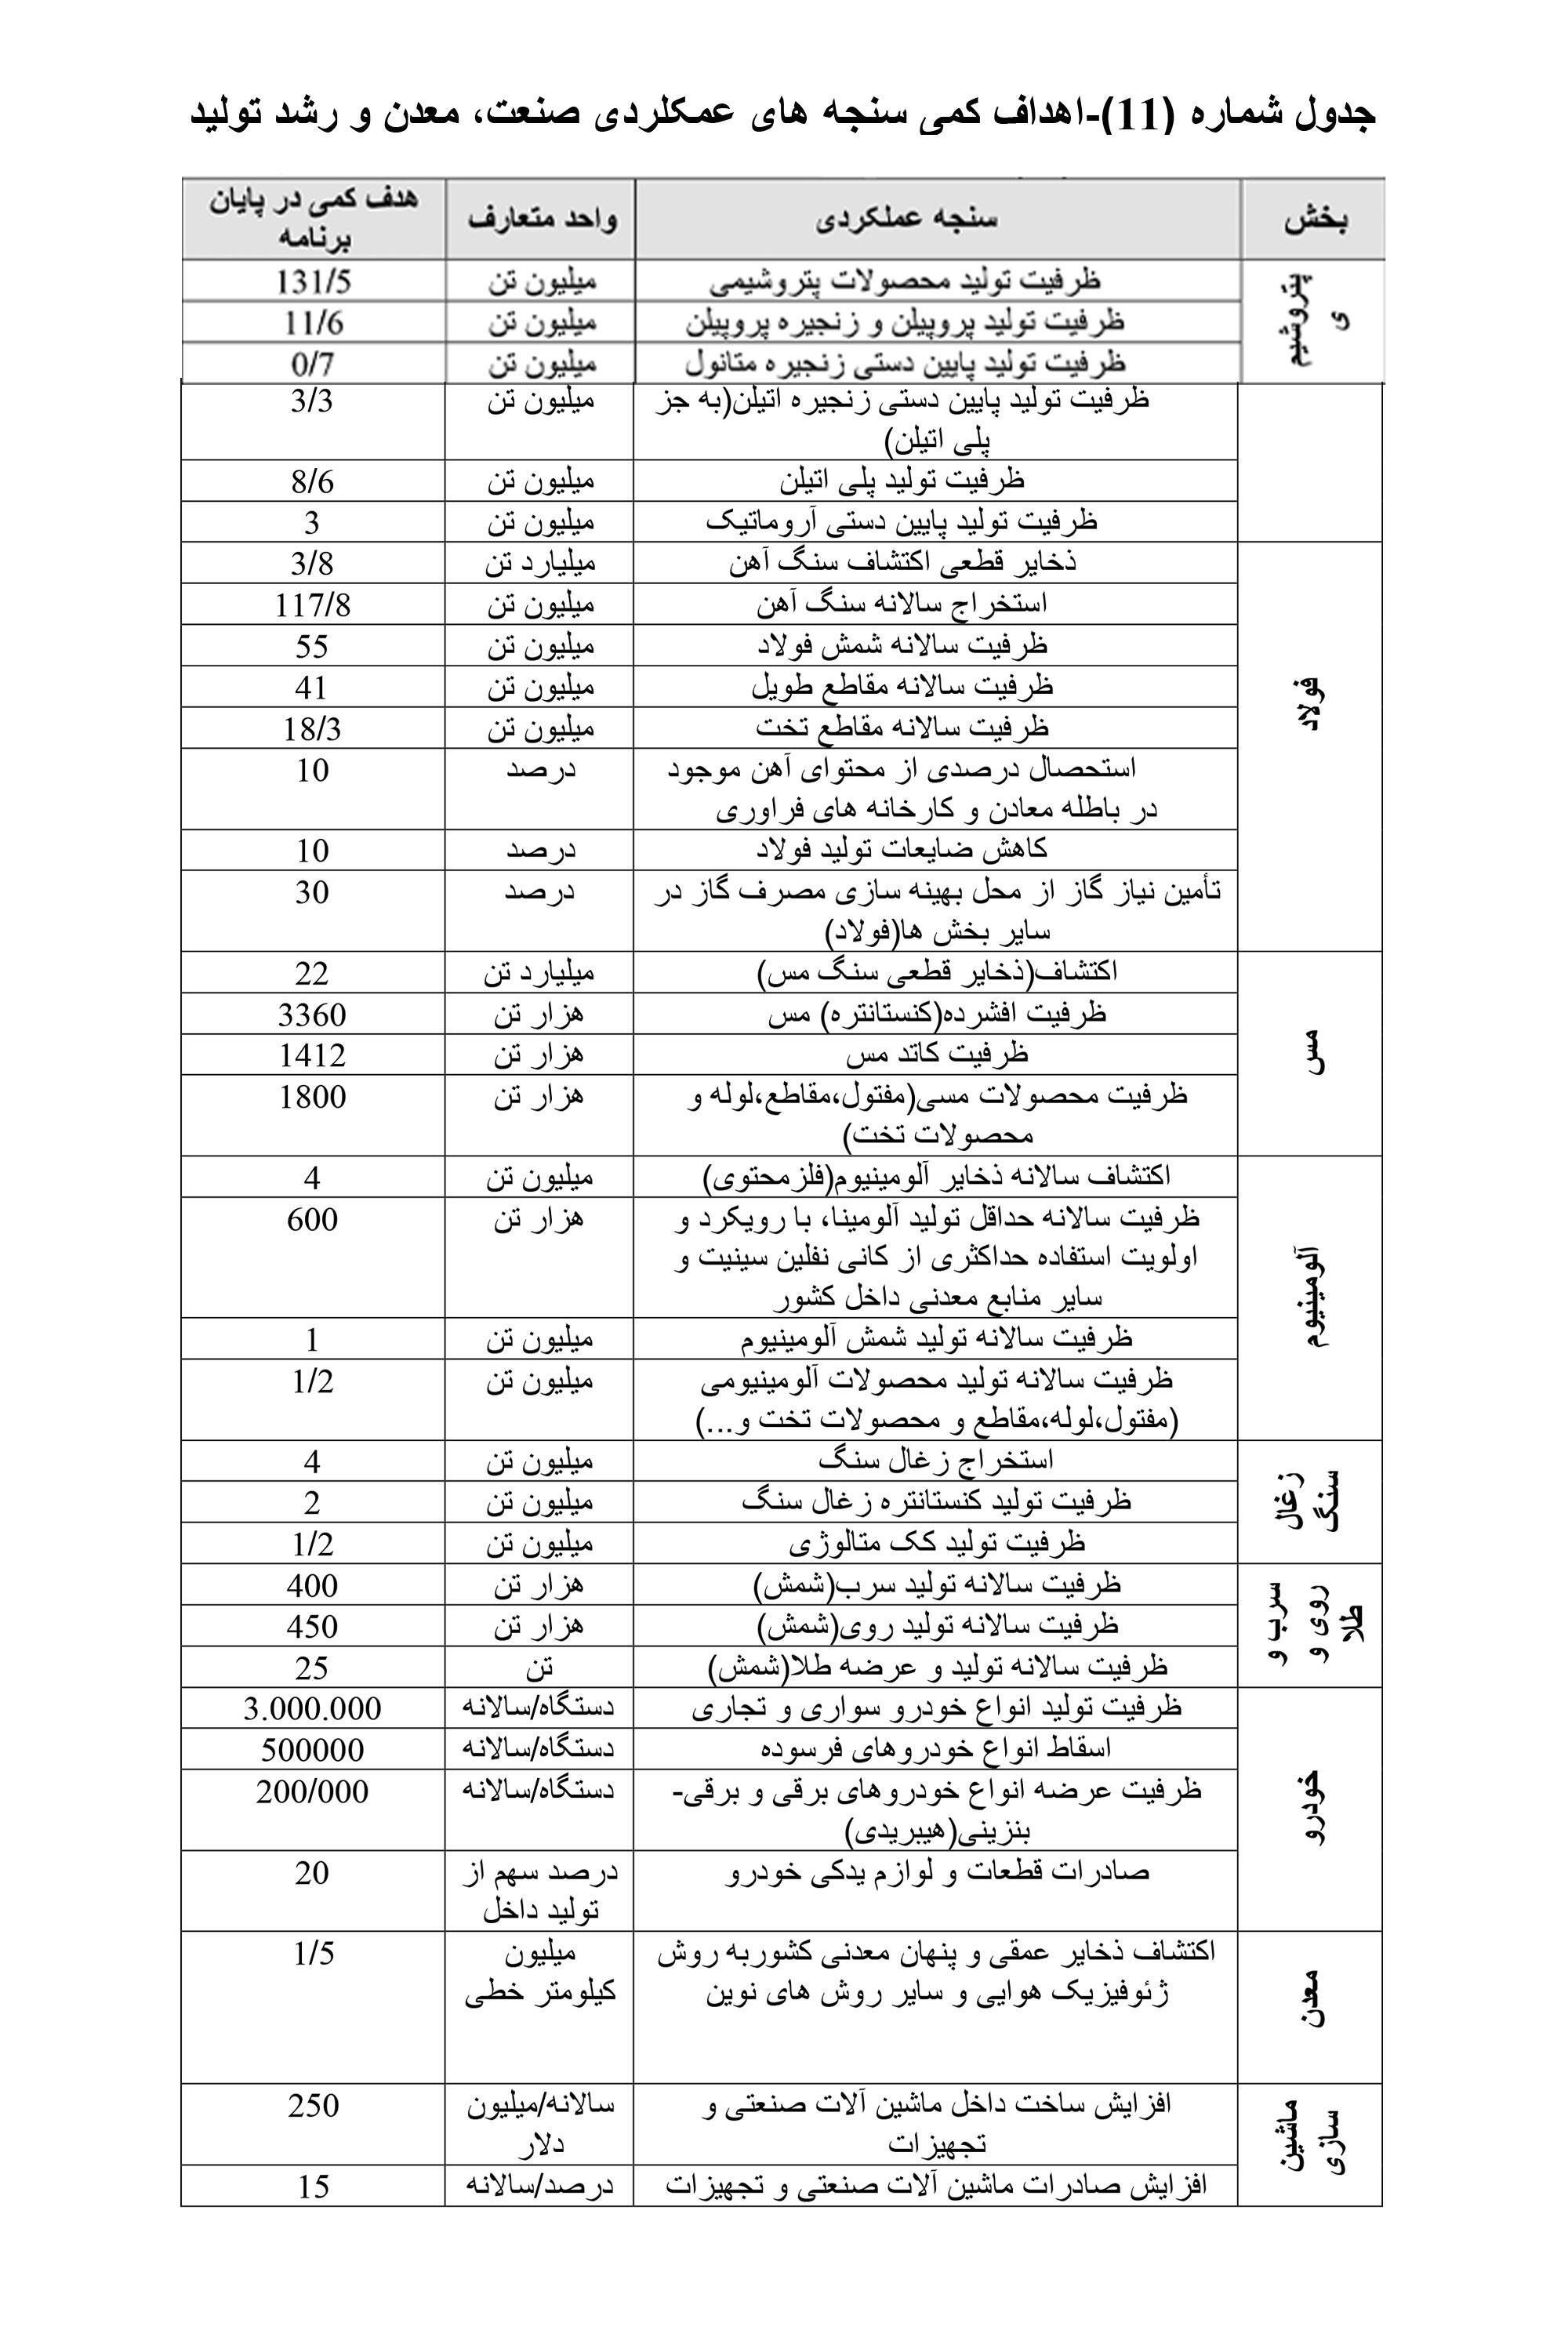 جدول شماره (11)-اهداف کمی سنجه های عمکلردی صنعت، معدن و رشد تولید
بخش سنجه عملکردی واحد متعارف هدف کمی در پایان
برنامه
پتروشیم
ی
ظرفیت تولید محصولات پتروشیمی میلیون تن 131/5
ظرفیت تولید پروپیلن و زنجیره پروپیلن میلیون تن 11/6
ظرفیت تولید پایین دستی زنجیره متانول میلیون تن 0/7
ظرفیت تولید پایین دستی زنجیره اتیلن(به جز میلیون تن 3/3
پلی اتیلن)
ظرفیت تولید پلی اتیلن میلیون تن 8/6
ظرفیت تولید پایین دستی آروماتیک میلیون تن 3
فولاد
ذخایر قطعی اکتشاف سنگ آهن میلیارد تن 3/8
استخراج سالانه سنگ آهن میلیون تن 117/8
ظرفیت سالانه شمش فولاد میلیون تن 55
ظرفیت سالانه مقاطع طویل میلیون تن 41
ظرفیت سالانه مقاطع تخت میلیون تن 18/3
استحصال درصدی از محتوای آهن موجود درصد 10
در باطله معادن و کارخانه های فراوری
کاهش ضایعات تولید فولاد درصد 10
تأمین نیاز گاز از محل بهینه سازی مصرف گاز در درصد 30
سایر بخش ها(فولاد)
مس
اکتشاف(ذخایر قطعی سنگ مس) میلیارد تن 22
ظرفیت افشرده(کنستانتره) مس هزار تن 3360
ظرفیت کاتد مس هزار تن 1412
ظرفیت محصولات مسی(مفتول،مقاطع،لوله و هزار تن 1800
محصولات تخت)
آلومینیوم
اکتشاف سالانه ذخایر آلومینیوم(فلزمحتوی) میلیون تن 4
ظرفیت سالانه حداقل تولید آلومینا، با رویکرد و هزار تن 600
اولویت استفاده حداکثری از کانی نفلین سینیت و
سایر منابع معدنی داخل کشور
ظرفیت سالانه تولید شمش آلومینیوم میلیون تن 1
ظرفیت سالانه تولید محصولات آلومینیومی میلیون تن 1/2
(مفتول،لوله،مقاطع و محصولات تخت و...)
زغال
سنگ
استخراج زغال سنگ میلیون تن 4
ظرفیت تولید کنستانتره زغال سنگ میلیون تن 2
ظرفیت تولید کک متالوژی میلیون تن 1/2
سرب و
روی و
طلا
ظرفیت سالانه تولید سرب(شمش) هزار تن 400
ظرفیت سالانه تولید روی(شمش) هزار تن 450
ظرفیت سالانه تولید و عرضه طلا(شمش) تن 25
خودرو
ظرفیت تولید انواع خودرو سواری و تجاری دستگاه/سالانه 3.000.000
اسقاط انواع خودروهای فرسوده دستگاه/سالانه 500000
ظرفیت عرضه انواع خودروهای برقی و برقی- دستگاه/سالانه 200/000
بنزینی(هیبریدی)
صادرات قطعات و لوازم یدکی خودرو درصد سهم از 20
تولید داخل
معدن
اکتشاف ذخایر عمقی و پنهان معدنی کشوربه روش میلیون 1/5
ژئوفیزیک هوایی و سایر روش های نوین کیلومتر خطی
ماشین
سازی
افزایش ساخت داخل ماشین آلات صنعتی و سالانه/میلیون 250
تجهیزات دلار
افزایش صادرات ماشین آلات صنعتی و تجهیزات درصد/سالانه 15